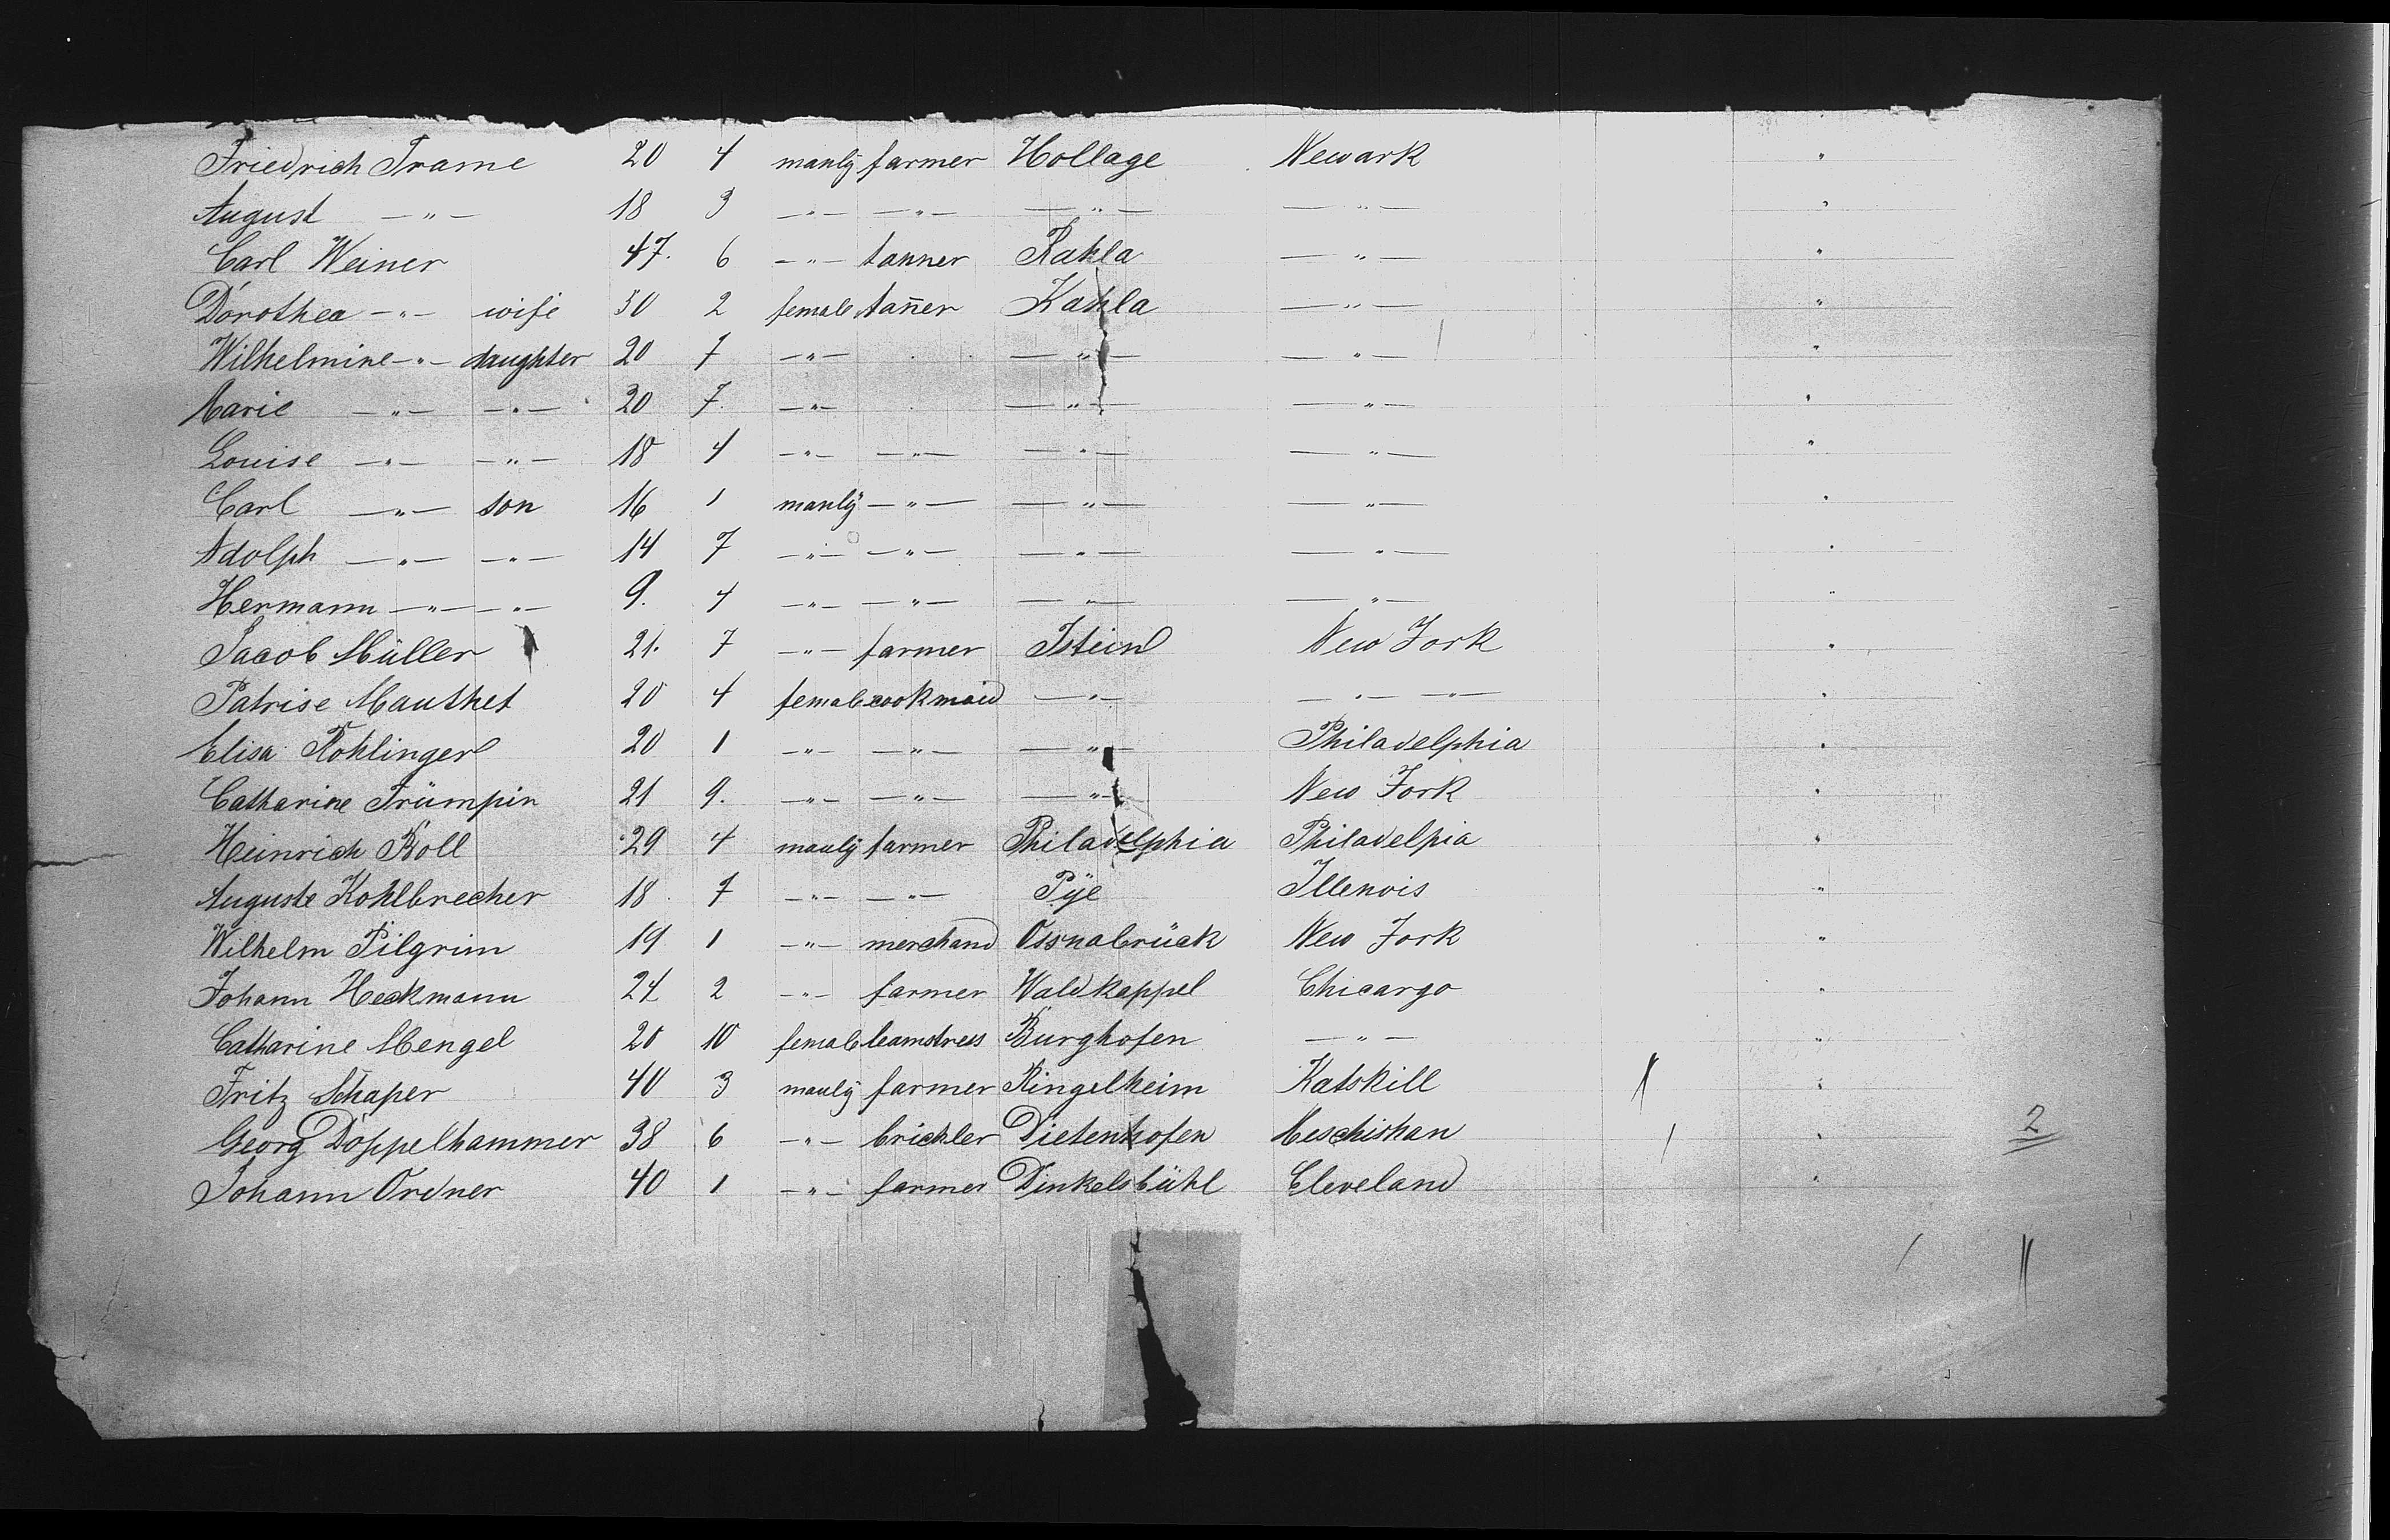 Friedrich Trame 20 4 manly farmer Hollage Newark "
August —"— 18 3 —"— —"— —"— —"— "
Carl Weiner 47. 6 —"— tanner Kahla —"— "
Dorothea —"— wife 30 2 female tañer Kahla —"— "
Wilhelmine —"— daughter 20 7 —"— —"— —"— "
Marie —"— —"— 20 7. —"— —"— —"— "
Louise —"— —"— 18 4 —"— —"— —"— —"— "
Carl —"— son 16 1 manly —"— —"— —"— "
Adolph —"— —"— 14 7 —"— —"— —"— —"— "
Hermann —"— —"— 9. 4 —"— —"— —"— —"— "
Jacob Müller 21. 7 —"— farmer Istein New York "
Patrise Mauthet 20 4 female cookmaid —"— —"— —"— "
Elisa Rohlinger 20 1 —"— —"— —"— Philadelphia "
Catharine Trümpin 21 9. —"— —"— —"— New York "
Heinrich Boll 29 4 manly farmer Philadelphia Philadelpia "
Auguste Kohlbrecher 18 7 —"— —"— Pÿe Illenois "
Wilhelm Pilgrim 19 1 —"— merchand Ossnabrück New York "
Johann Heckmann 24 2 —"— farmer Waldkappel Chicargo "
Catharine Mengel 20 10 female seamstress Burghofen —"— "
Fritz Schaper 40 3 manly farmer Ringelheim Katskill "
Georg Doppelhammer 38 6 —"— brickler Dietenhofen Meschishan " 2
Johann Ordner 40 1 —"— farmer Dinkelsbühl Cleveland "